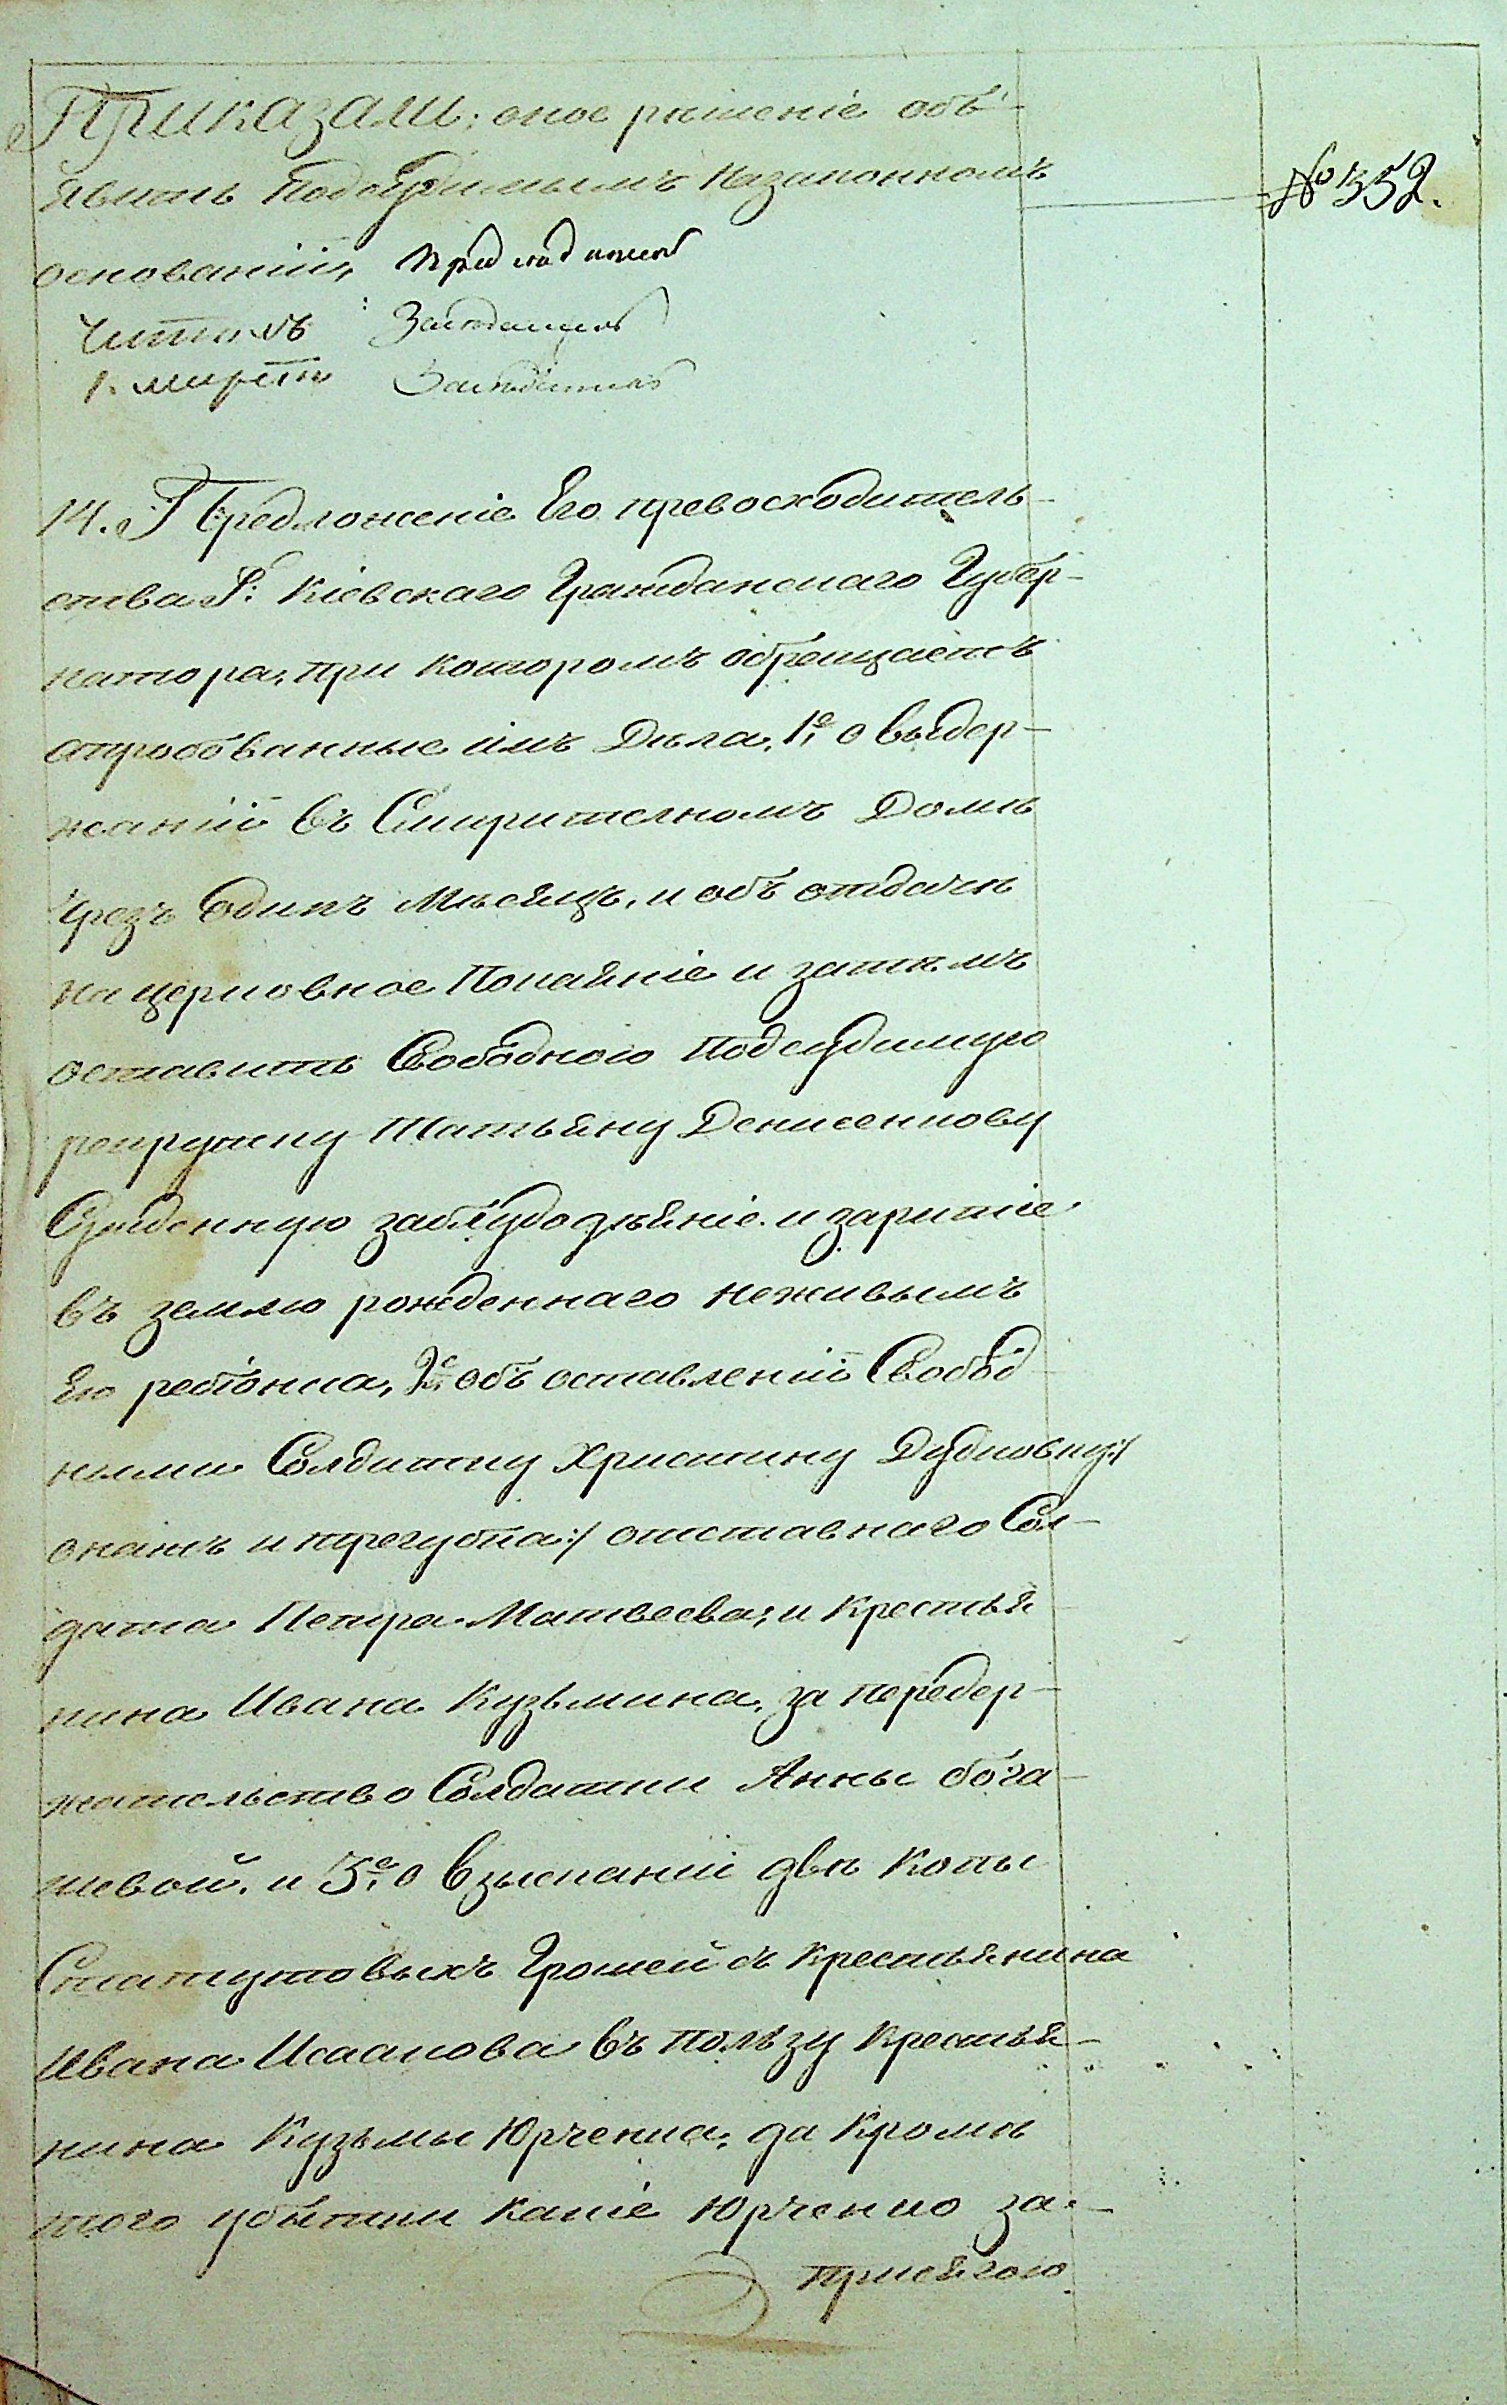 Приказали; оное рѣшеніе объ-
явить Подсудимымъ Назаконномъ
основаніи,
14. Предложеніе Его превосходитель-
ства Г: Кіевскаго Гражданскаго Губер-
натора, при которомъ обращаетъ
апробованные имъ Дѣла, 1е, о выдер-
жаніи въ Смирителномъ Домѣ
Чрезъ Одинъ Мѣсяцъ, и объ отдачѣ
на церковное Покаяніе и затѣмъ
оставить Свободною Подсудимую
рекрутку Татьяну Денисенкову
Сужденную заблудодѣяніе и зарытіе
въ землю рожденнаго неживымъ
Ею ребѣонка, 2е, объ оставленіи Свобод-
ными Солдатку Христину Дубковну:/
онажъ и трегубка:/ отставнаго Сол-
дата Петра Матвеева, и Крестья-
нина Ивана Кузьмина, за передер-
жательство Солдатки Анны бога-
шевой. и 3е, о Взысканіи двѣ Копы
Статутовыхъ Грошей съ Крестьянина
Ивана Исакова въ пользу Крестья-
нина Кузьмы Юрченка, да Кромѣ
того убытки какіе Юрченко за-
присягою
№ 352.